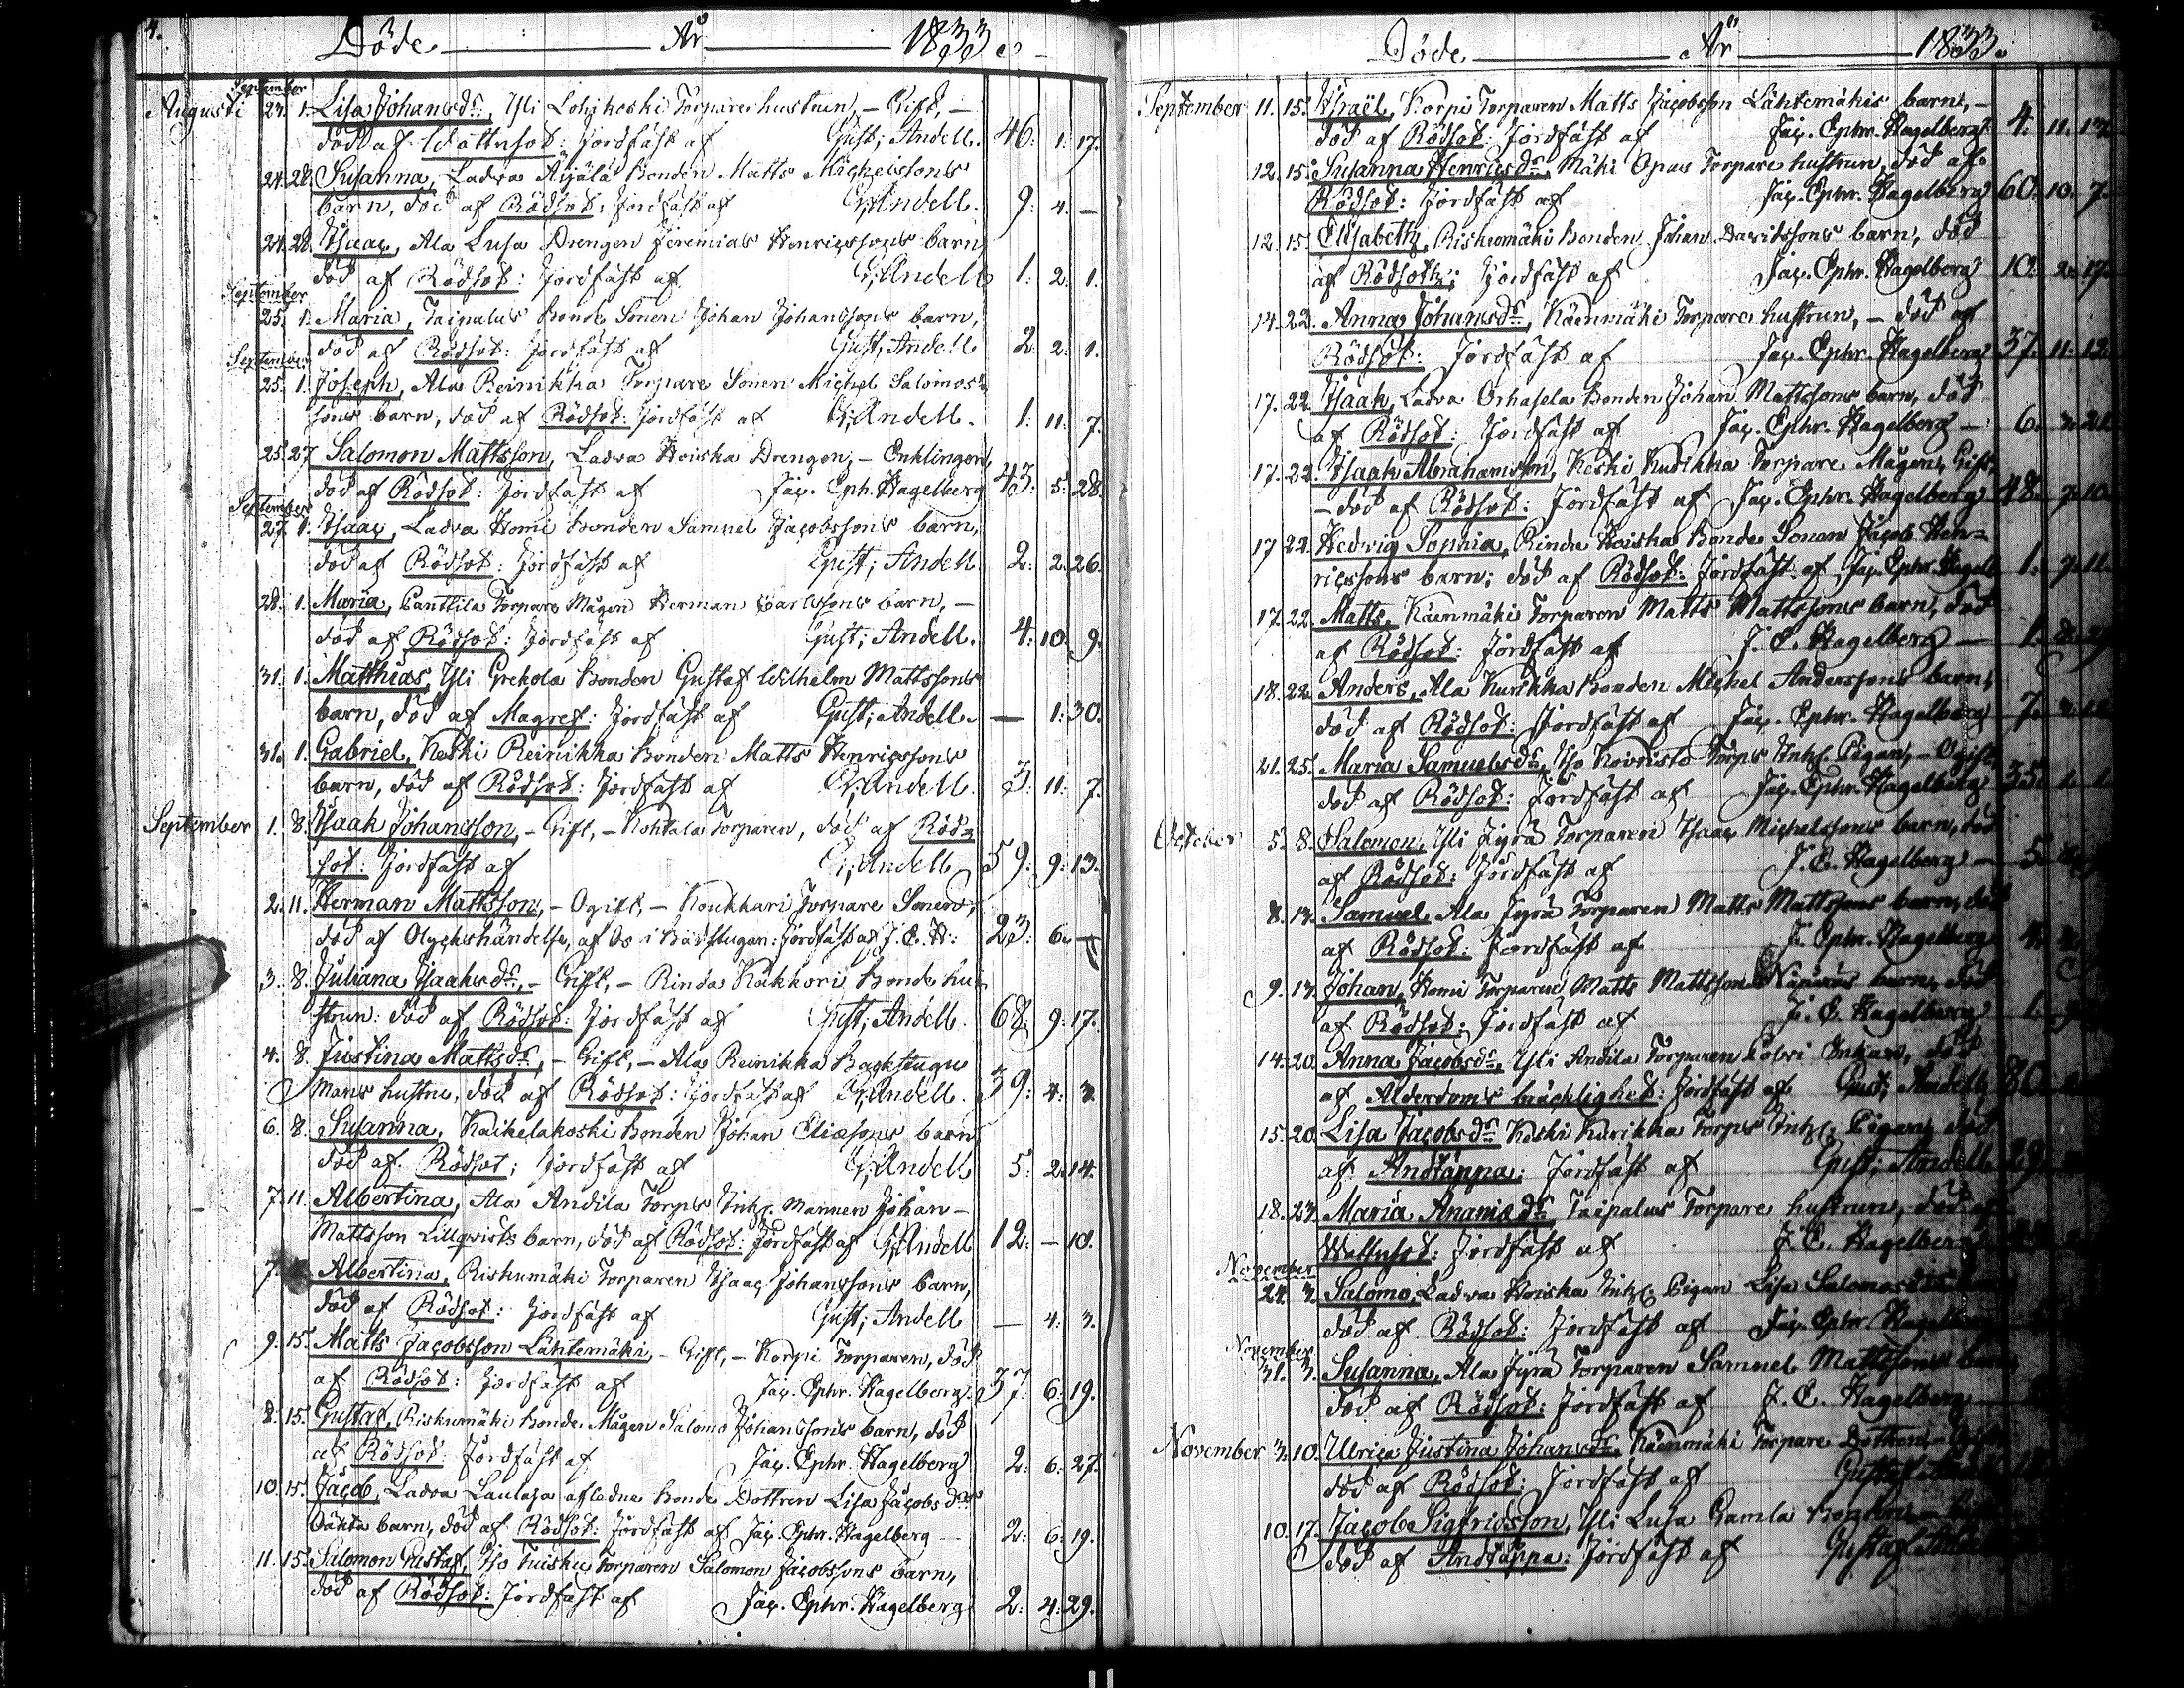 4.
Döde År 1833.
September
Augusti 23. 1. Lisa Johansdr, Yli Lohikoski Torpare hustrun, - Gift, -
död af Wattusot: Jordfäst af Gust; Andell. 46: 1: 17.
24. 28. Susanna, Ladva Äijälä Bonden Matts Michelssons
barn, död af Rödsot: Jordfäst af G; Andell. 9: 4: -
24. 28. Isaac, Ala Lusa Drengen Jeremias Henricssons barn
död af Rödsot: Jordfäst af G; Andell 1: 2: 1.
September
25. 1. Maria, Taipalus Bonde Sonen Johan Johanssons barn,
död af Rödsot: Jordfäst af Gust; Andell 2: 2: 1.
September
25. 1. Joseph, Ala Reinikka Torpare Sonen Michel Salomos-
sons barn, död af Rödsot: Jordfäst af G; Andell. 1: 11: 7.
25. 27. Salomon Mattsson, Ladva Hoiska Drengen, - Enklingen,
död af Rödsot: Jordfäst af Jac. Eph. Hagelberg 43: 5: 28.
September
27. 1. Isaac, Ladva Homi Bonden Samuel Jacobssons barn,
död af Rödsot: Jordfäst af Gust; Andell 2: 2: 26.
28. 1. Maria, Panttila Torpare Mågen Herman Carlssons barn, -
död af Rödsot: Jordfäst af Gust; Andell. 4: 10: 9.
31. 1. Matthias, Yli Grekola Bonden Gustaf Wilhelm Mattssons
barn, död af Magref: Jordfäst af Gust; Andell. - 1: 30.
31. 1. Gabriel, Keski Reinikka Bonden Matts Henricssons
barn, död af Rödsot: Jordfäst af G; Andell. 3: 11: 7.
September 1. 8. Isaak Johansson, - Gift, - Kohtala Torparen, död af Röd-
sot: Jordfäst af G; Andell 59: 9: 13.
2. 11. Herman Mattsson, - Ogift, - Koukkari Torpare Sonen,
död af Olyckshändelse, af Os i Badstugan: Jordfäst af J. E. H: 23: 6: -
3. 8. Juliana Isaaksdr, - Gift, - Rinda Käkkori Bonde hu-
strun: död af Rödsot: Jordfäst af Gust; Andell. 68: 9: 17.
4. 8. Justina Mattsdr, - Gift, - Ala Reinikka Backstugu
Mans hustru, död af Rödsot: Jordfäst af G; Andell. 39: 4: 3.
6. 8. Susanna, Kaikelakoski Bonden Johan Eliæsons barn
död af Rödsot; Jordfäst af G; Andell 5: 2: 14.
7. 11. Albertina, Ala Andila Torps Inhs. Mannen Johan -
Mattsson Lillqvists barn, död af Rödsot: Jordfäst af G; Andell 12: - 10.
7. Albertina, Riskumäki Torparen Isaac Johanssons barn,
död af Rödsot: Jordfäst af Gust; Andell - 4: 3.
9. 15. Matts Jacobsson Lähtemäki, - Gift, - Korpi Torparen, död
af Rödsot: Jordfäst af Jac. Ephr. Hagelberg. 37: 6: 19.
8. 15. Gustaf, Riskumäki Bonde Mågen Salomo Johanssons barn, död
af Rödsot: Jordfäst af Jac. Ephr. Hagelberg 2: 6: 27.
10. 15. Jacob, Ladva Laulaja afledne Bonde Dottren Lisa Jacobsdrs
oäkta barn, död af Rödsot: Jordfäst af Jac. Ephr. Hagelberg 2: 6: 19.
11. 15. Salomon Gustaf, Iso Tuisku Torparen Salomon Jacobssons barn,
död af Rödsot: Jordfäst af Jac. Ephr. Hagelberg 2: 4: 29.
Döde År 1833.
September 11. 15. Israël, Korpi Torparen Matts Jacobsson Lähtemäkis barn, -
död af Rödsot: Jordfäst af Jac. Ephr. Hagelberg 4: 11:
12. 15. Susanna Henricsdr, Mäki Opas Torpare hustrun, död af
Rödsot: Jordfäst af Jac. Ephr. Hagelberg 60: 10: 7.
12. 15. Elisabeth, Riskumäki Bonden Johan Davidssons barn, död
af Rödsoth; Jordfäst af Jac. Ephr. Hagelberg 10: 2: 17.
14. 22. Anna Johansdr, Käenmäki Torpare hustrun, - död af
Rödsot: Jordfäst af Jac. Ephr. Hagelberg 37: 11: 12.
17. 22. Isaak, Ladva Orhasela Bonden Johan Mattssons barn, död
af Rödsot: Jordfäst af Jac. Ephr. Hagelberg - 6:
17. 22. Isaak Abrahamsson, Keski Kurikka Torpare Mågen, Gift,
- död af Rödsot: Jordfäst af Jac. Ephr. Hagelberg 48: 7: 10.
17. 22. Hedvig Sophia, Rinda Hoiska Bonde Sonen Jacob Hen-
ricssons barn; död af Rödsot: Jordfäst af Jac. Ephr. Hagelb 1: 7: 11.
17. 22. Matts, Käenmäki Torparen Matts Mattssons barn, död
af Rödsot: Jordfäst af J. E. Hagelberg - 1: 8:
18. 22. Anders, Ala Kurikka Bonden Michel Anderssons barn,
död af Rödsot: Jordfäst af Jac. Ephr. Hagelberg 7:
21. 25. Maria Samuelsdr, Iso Koivisto Torps Inhs. Pigan, - Ogift,
död af Rödsot: Jordfäst af Jac. Ephr. Hagelberg 35: 1: 1.
October 5. 8. Salomon, Yli Jyrä Torparen Isaac Michelssons barn, död
af Rödsot: Jordfäst af J. E. Hagelberg - 5:
8. 13. Samuel, Ala Jyrä Torparen Matts Mattssons barn, död
af Rödsot: Jordfäst af J. Ephr. Hagelberg 4:
9. 13. Johan, Homi Torparen Matts Mattsson barn, död
af Rödsot: Jordfäst af J. E. Hagelberg 1:
14. 20. Anna Jacobsdr, Yli Andila Torparen Polvi Enkan, död
af Alderdoms bräcklighet: Jordfäst af Gust; Andell 80:
15. 20. Lisa Jacobsdr Keski Kurikka Torps Inhs. Pigan, död
af Andtäppa: Jordfäst af Gust; Andell 29:
18. 27. Maria Ananiædr Taipalus Torpare hustrun, död af
Wattusot: Jordfäst af J. E. Hagelberg
November
24. 3. Salomo, Ladva Hoiska Inhs. Pigan Lisa Salomosdrs
död af Rödsot: Jordfäst af Jac. Ephr. Hagelberg
November
31. 3. Susanna, Ala Jyrä Torparen Samuel Mattssons barn
död af Rödsot: Jordfäst af J. E. Hagelberg
November 3. 10. Ulrica Justina Johansdr Käenmäki Torpare Dottren,
död af Rödsot: Jordfäst af Gustaf
10. 17. Jacob Sigfridsson, Yli Lusa Gamla
död af Andtäppa: Jordfäst af Gustaf